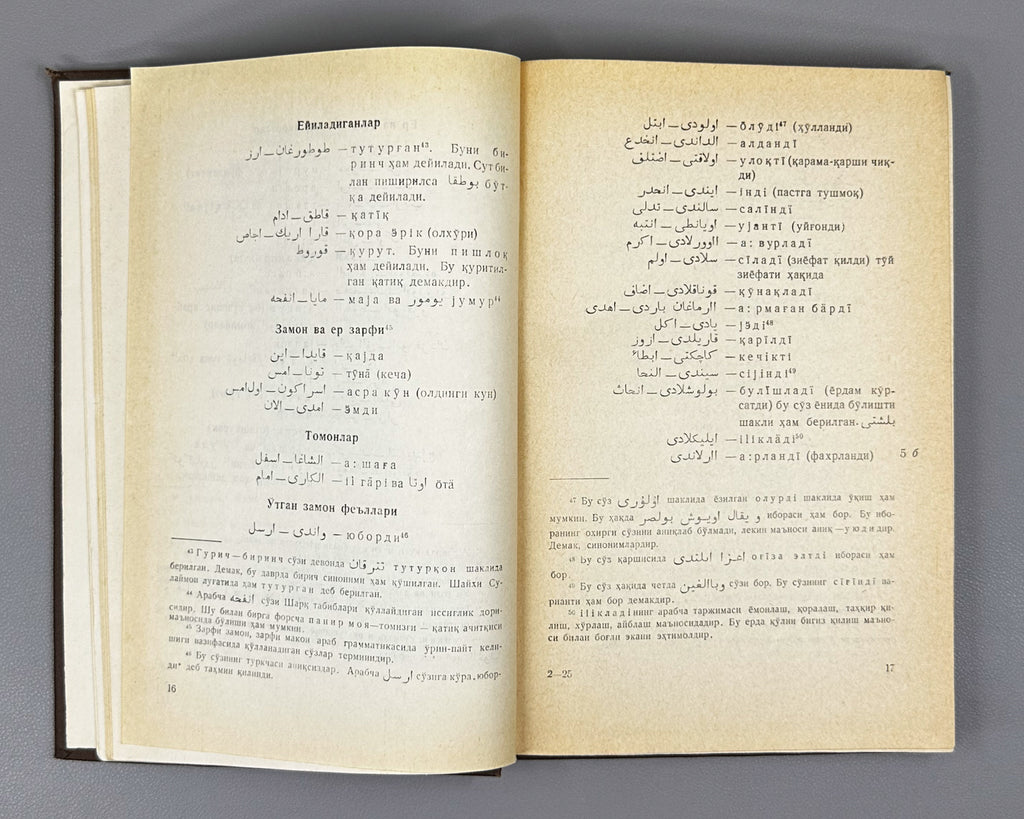 Ейиладиганлар
طوطورغان — ارز — тутурған⁴³. Буни би-
ринч ҳам дейилади. Сут би-
лан пиширилса بوطقا бўт-
қа дейилади.
قاطق — ادام — қатīқ
قارا اريك — اجاص — қора äрік (олхўри)
قوروط — қурут. Буни пишлоқ
ҳам дейилади. Бу қуритил-
ган қатиқ демакдир.
مايا — انفحه — маја ва يومور јумур⁴⁴
Замон ва ер зарфи⁴⁵
قايدا — اين — қајда
تونا — امس — тўнä (кеча)
اسراكون — اول‌امس — асра кўн (олдинги кун)
امدى — الان — äмди
Томонлар
الشاغا — اسفل — а: шаға
الكارى — امام — ilгäрі ва اوتا öтä
Ўтган замон феъллари
واندى — ارسل — юборди⁴⁶
⁴³ Гурич — биринч сўзи девонда تترقان тутурқон шаклида
берилган. Демак, бу даврда бирич синоними ҳам қўшилган. Шайхи Су-
лаймон луғатида ҳам тутурган деб берилган.
⁴⁴ Арабча انفحه сўзи Шарқ табиблари қўллайдиган иссиғлик дори-
сидир. Шу билан бирга форсча панир моя—томизғи — қатиқ ачитқиси
маъносида бўлиши ҳам мумкин.
⁴⁵ Зарфи замон, зарфи макон араб грамматикасида ўрин-пайт кели-
шиги вазифасида қўлланадиган сўзлар терминидир.
⁴⁶ Бу сўзнинг туркчаси аниқсиздар. Арабча ارسل сўзига кўра „юбор-
ди" деб тахмин қилинди.
16
اولودى — ابتل — öлўді⁴⁷ (ҳўлланди)
الداندى — انخدع — алдандī
اولاقتى — اختلف — улоқтī (қарама-қарши чиқ-
ди)
ايندى — انحدر — інді (пастга тушмоқ)
سالندى — تدلى — салīндī
اويانطى — انتبه — ујантī (уйғонди)
ااوورلادى — اكرم — а: вурладī
سلادى — اولم — сīладī (зиёфат қилди) тўй
зиёфати ҳақида
قوناقلادى — اضاف — қўнақладī
اارماغان باردى — اهدى — а: рмаған бäрдī
يادى — اكل — јäді⁴⁸
قاريلدى — ارور — қарīлдī
كاچكتى — ابطاء — кечіктi
سيندى — التحا — сijінді⁴⁹
بولوشلادى — انحاث — булīшладī (ёрдам кўр-
сатди) бу сўз ёнида бўлишти
шакли ҳам берилган. بلشتى
ايليكلادى — ilікläді⁵⁰
اارلاندى — а:рландī (фахрланди) 5 б
⁴⁷ Бу сўз اولورى шаклида ёзилган олурді шаклида ўқиш ҳам
мумкин. Бу ҳақда و يقال اويوش بولصر ибораси ҳам бор. Бу ибо-
ранинг охирги сўзини аниқлаб бўлмади, лекин маъноси аниқ—уюдидир.
Демак, синонимлардир.
⁴⁸ Бу сўз қаршисида اعزا ايلندى оғīза элтді ибораси ҳам
бор.
⁴⁹ Бу сўз ҳақида четда وباالغين сўзи бор. Бу сўзнинг сīғīнді ва-
рианти ҳам бор демакдир.
⁵⁰ іlікläдiнинг арабча таржимаси ёмонлаш, қоралаш, таҳқир қи-
лиш, хўрлаш, айблаш маъносидадир. Бу ерда қўлни бигиз қилиш маъно-
си билан боғли экани эҳтимолдир.
2—25 17